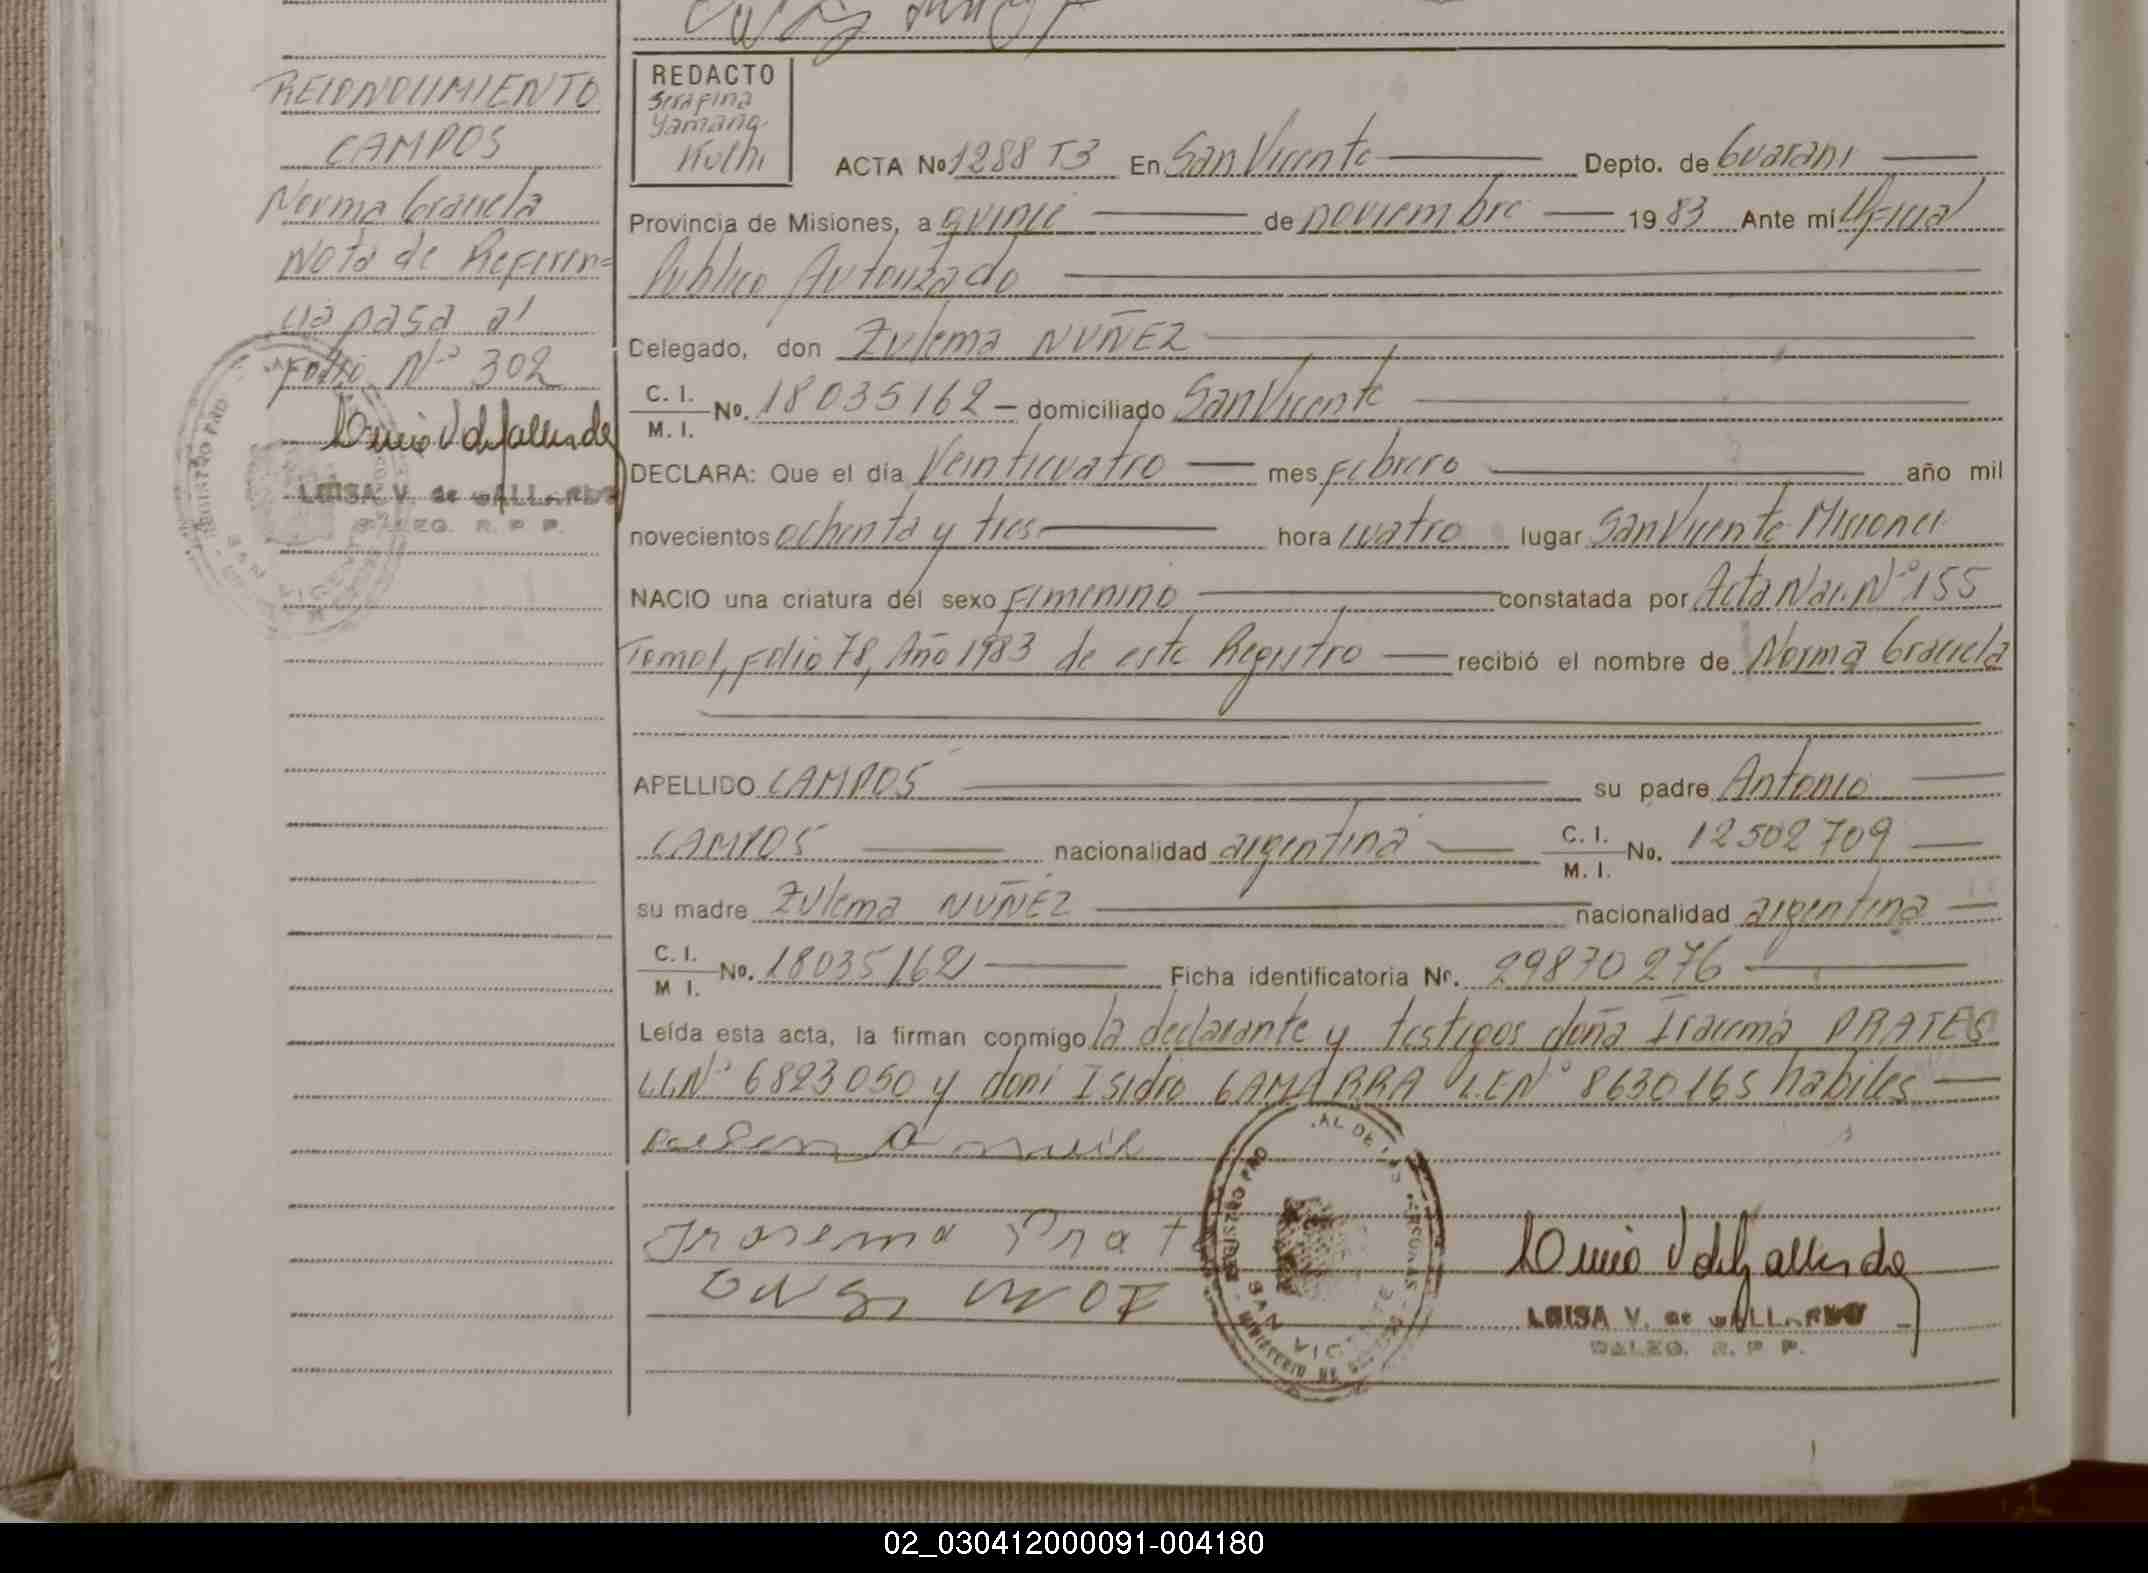 RECONOCIMIENTO
CAMPOS
Norma Graciela
Nota de Referen=
cia pasa al
Folio Nº 302
LUISA V. de GALLARDO
DALEG. R. P. P.
REDACTO
Serafina
Yamana
ACTA Nº 1288 T3 En San Vicente Depto. de Guarani
Provincia de Misiones, a quince de noviembre 1983 Ante mí Oficial
Publico Autorizado
Delegado, don Zulema NUÑEZ
C. I. / M. I. No. 18035162 – domiciliado San Vicente
DECLARA: Que el día Veinticuatro mes febrero año mil
novecientos ochenta y tres hora cuatro lugar San Vicente Misiones
NACIO una criatura del sexo femenino constatada por Acta Nac. Nº 155
Tomo 1, Folio 78, Año 1983 de este Registro recibió el nombre de Norma Graciela
APELLIDO CAMPOS su padre Antonio
CAMPOS nacionalidad argentina C. I. / M. I. No. 12502709
su madre Zulema NUÑEZ nacionalidad argentina
C. I. / M. I. No. 18035162 Ficha identificatoria Nr. 29870276
Leída esta acta, la firman conmigo la declarante y testigos doña Iracema PRATES
LCNº 6823050 y don Isidro GAMARRA LENº 8630165 habiles
Irasema Prat
REGISTRO PRO AL DE LAS PERSONAS
SAN VICENTE
LUISA V. de GALLARDO
DALEG. R. P. P.
02_030412000091-004180